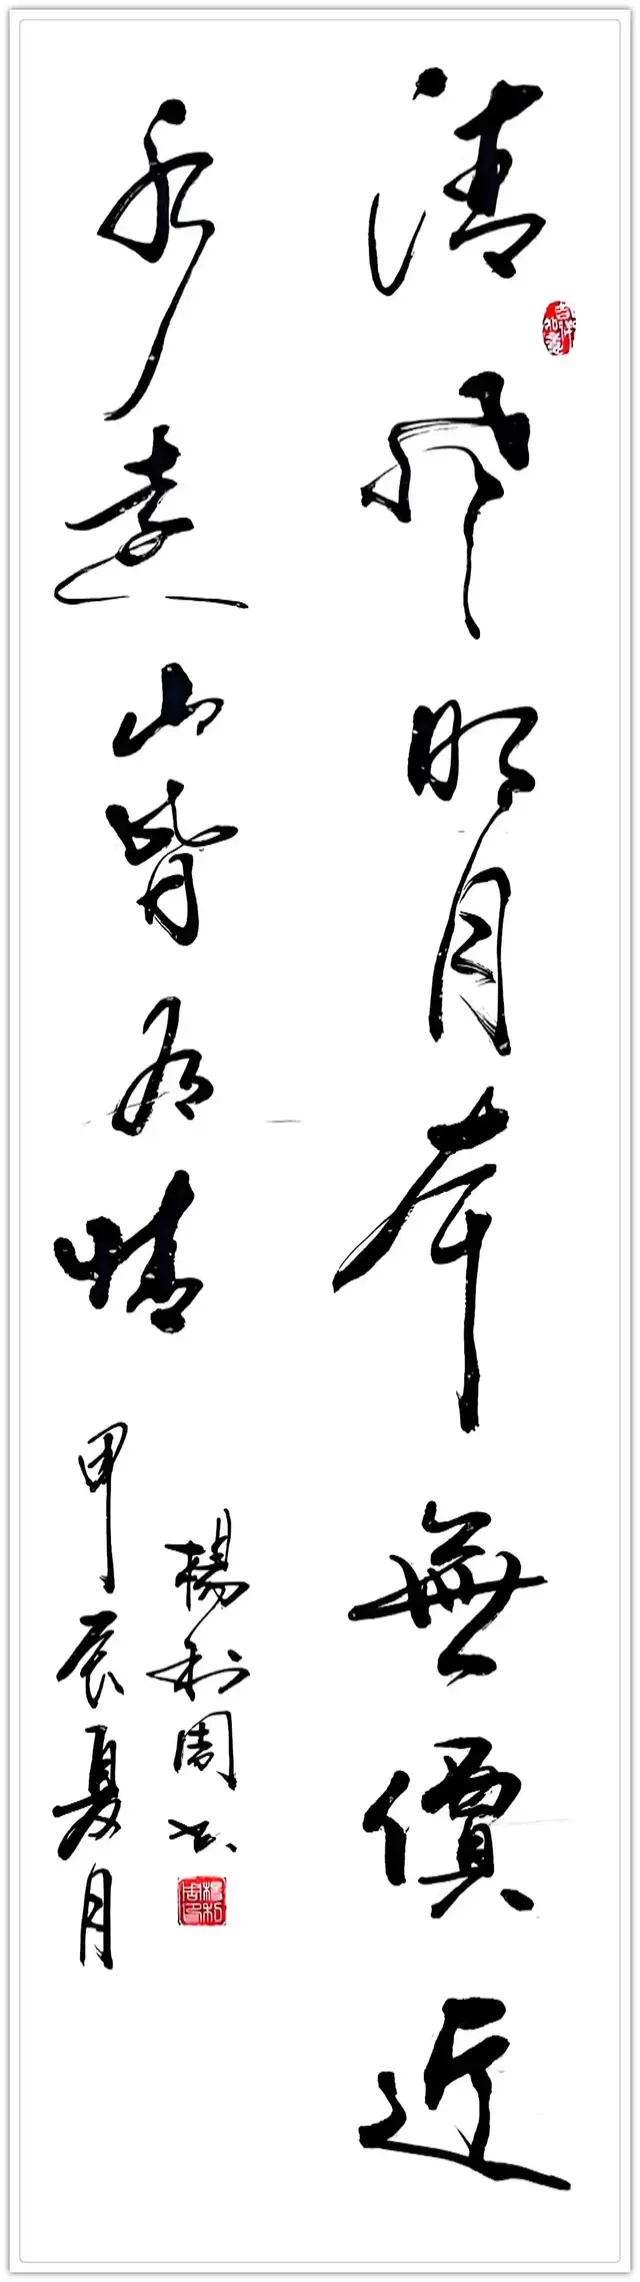 清風明月本無價近
水遠山皆有情
楊利周书
甲辰夏月